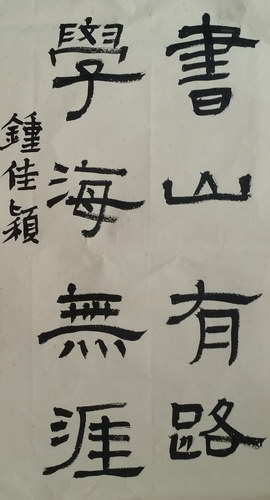 書山有路
學海無涯
鍾佳穎